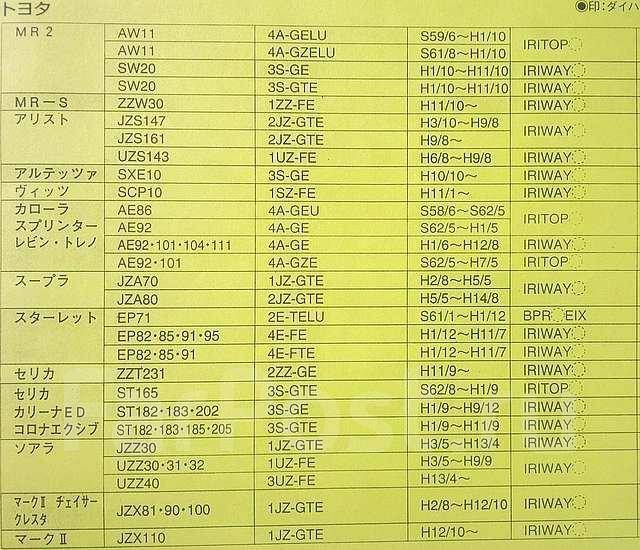 トヨタ ●印:ダイハ
MR2 AW11 4A-GELU S59/6～H1/10 IRITOP◌
AW11 4A-GZELU S61/8～H1/10
SW20 3S-GE H1/10～H11/10 IRIWAY◌
SW20 3S-GTE H1/10～H11/10 IRIWAY◌
MR－S ZZW30 1ZZ-FE H11/10～ IRIWAY◌
アリスト JZS147 2JZ-GTE H3/10～H9/8 IRIWAY◌
JZS161 2JZ-GTE H9/8～
UZS143 1UZ-FE H6/8～H9/8 IRIWAY◌
アルテッツァ SXE10 3S-GE H10/10～ IRIWAY◌
ヴィッツ SCP10 1SZ-FE H11/1～ IRIWAY◌
カローラ AE86 4A-GEU S58/6～S62/5 IRITOP◌
スプリンター AE92 4A-GE S62/5～H1/5
レビン・トレノ AE92・101・104・111 4A-GE H1/6～H12/8 IRIWAY◌
AE92・101 4A-GZE S62/5～H7/5 IRITOP◌
スープラ JZA70 1JZ-GTE H2/8～H5/5 IRIWAY◌
JZA80 2JZ-GTE H5/5～H14/8
スターレット EP71 2E-TELU S61/1～H1/12 BPR◌EIX
EP82・85・91・95 4E-FE H1/12～H11/7 IRIWAY◌
EP82・85・91 4E-FTE H1/12～H11/7 IRIWAY◌
セリカ ZZT231 2ZZ-GE H11/9～ IRIWAY◌
セリカ ST165 3S-GTE S62/8～H1/9 IRITOP◌
カリーナED ST182・183・202 3S-GE H1/9～H9/12 IRIWAY◌
コロナエクシブ ST182・183・185・205 3S-GTE H1/9～H11/9 IRIWAY◌
ソアラ JZZ30 1JZ-GTE H3/5～H13/4 IRIWAY◌
UZZ30・31・32 1UZ-FE H3/5～H9/9 IRIWAY◌
UZZ40 3UZ-FE H13/4～
マークⅡ チェイサー
クレスタ JZX81・90・100 1JZ-GTE H2/8～H12/10 IRIWAY◌
マークⅡ JZX110 1JZ-GTE H12/10～ IRIWAY◌